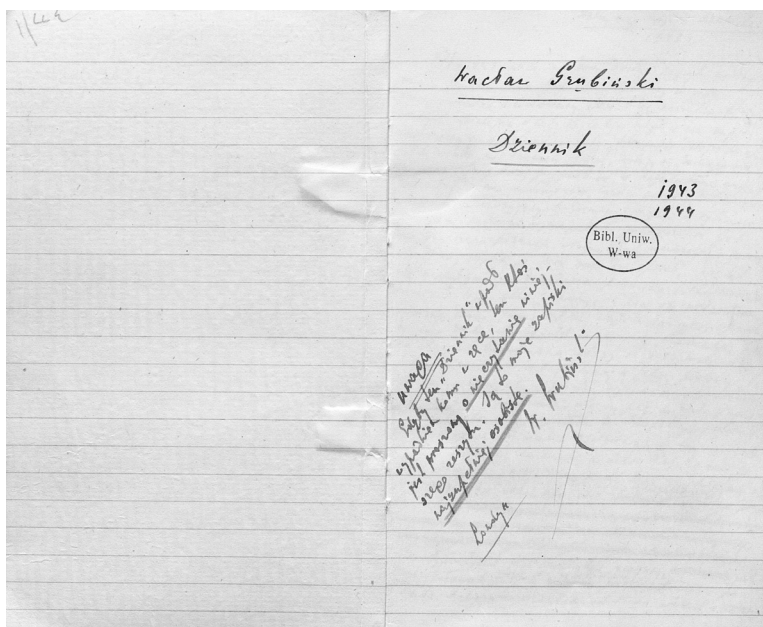 Wacław Grubiński
Dziennik
1943
1944
Bibl. Uniw.
W-wa
Uwaga
Gdyby ten "Dziennik" wpadł
wypadkiem komu w ręce, ten ktoś
jest proszony o nieczytanie niniej-
szego zeszytu. Są to moje zapiski
najzupełniej osobiste.
W. Grubiński
Londyn